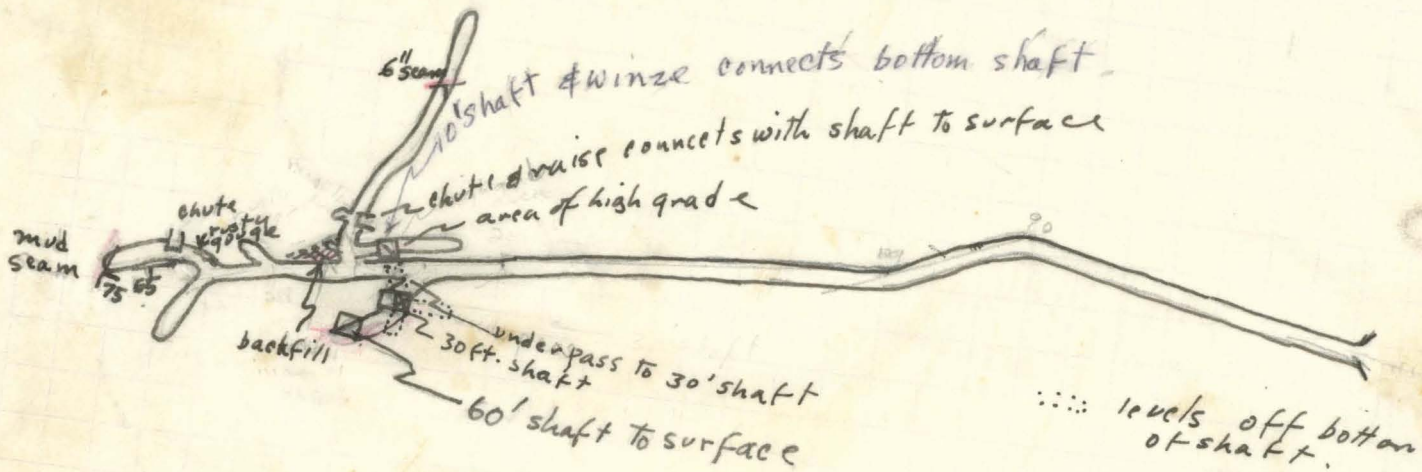 6" seam
10' shaft & winze connects bottom shaft.
chute & raise conncets with shaft to surface
area of high grade
chute
rusty
gouge
mud
seam
75
65
90
backfill
underpass to 30' shaft
30 ft. shaft
60' shaft to surface
:::: levels off bottom
of shaft.